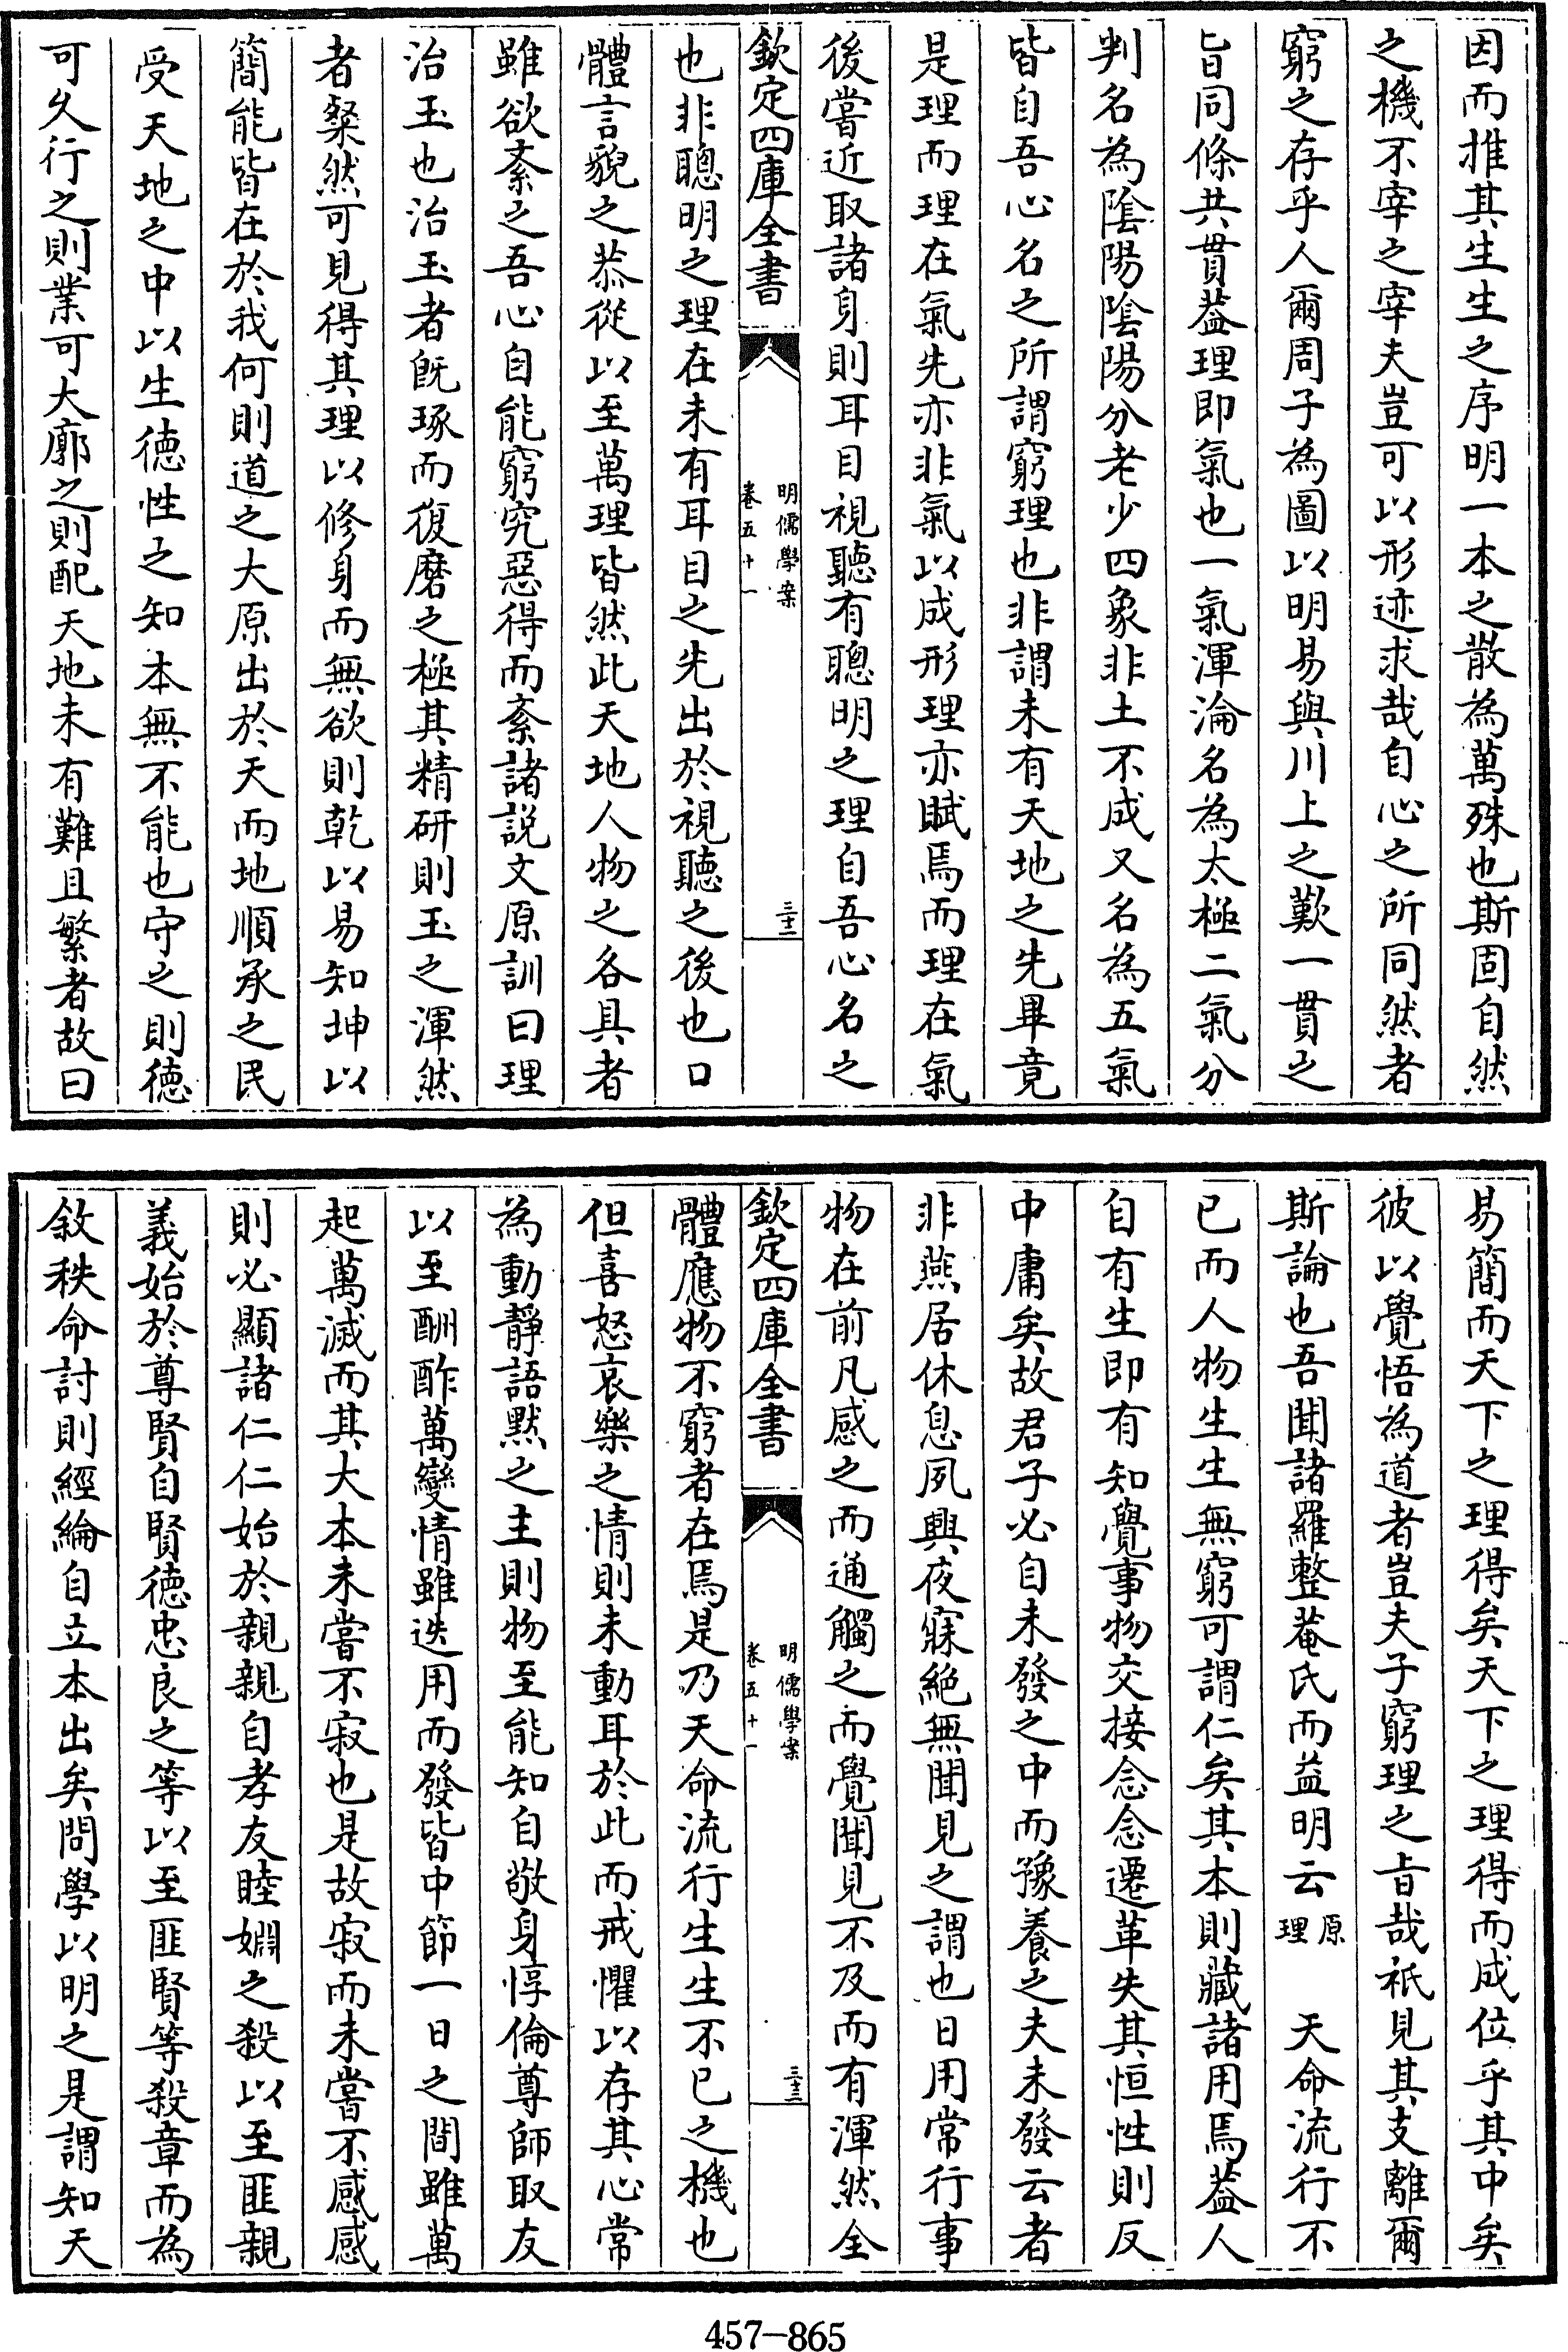 因而推其生生之序明一本之散為萬殊也斯固自然
之機不宰之宰夫豈可以形迹求哉自心之所同然者
窮之存乎人爾周子為圖以明易與川上之歎一貫之
旨同條共貫葢理即氣也一氣渾淪名為太極二氣分
判名為陰陽陰陽分老少四象非土不成又名為五氣
皆自吾心名之所謂窮理也非謂未有天地之先畢竟
是理而理在氣先亦非氣以成形理亦賦焉而理在氣
後嘗近取諸身則耳目視聽有聰明之理自吾心名之
欽定四庫全書
明儒學案
卷五十一
三十二
也非聰明之理在未有耳目之先出於視聽之後也口
體言貌之恭從以至萬理皆然此天地人物之各具者
雖欲紊之吾心自能窮究惡得而紊諸説文原訓曰理
治玉也治玉者旣琢而復磨之極其精研則玉之渾然
者粲然可見得其理以修身而無欲則乾以易知坤以
簡能皆在於我何則道之大原出於天而地順承之民
受天地之中以生德性之知本無不能也守之則德
可久行之則業可大廓之則配天地未有難且繁者故曰
易簡而天下之理得矣天下之理得而成位乎其中矣
彼以覺悟為道者豈夫子窮理之㫖哉祇見其支離爾
斯論也吾聞諸羅整菴氏而益明云原理 天命流行不
已而人物生生無窮可謂仁矣其本則藏諸用焉葢人
自有生即有知覺事物交接念念遷革失其恒性則反
中庸矣故君子必自未發之中而豫養之夫未發云者
非燕居休息夙興夜寐絶無聞見之謂也日用常行事
物在前凡感之而通觸之而覺聞見不及而有渾然全
欽定四庫全書
明儒學案
卷五十一
三十三
體應物不窮者在焉是乃天命流行生生不已之機也
但喜怒哀樂之情則未動耳於此而戒懼以存其心常
為動靜語黙之主則物至能知自敬身惇倫尊師取友
以至酬酢萬變情雖迭用而發皆中節一日之間雖萬
起萬滅而其大本未嘗不寂也是故寂而未嘗不感感
則必顯諸仁仁始於親親自孝友睦婣之殺以至匪親
義始於尊賢自賢德忠良之等以至匪賢等殺章而為
敘秩命討則經綸自立本出矣問學以明之是謂知天
457—865